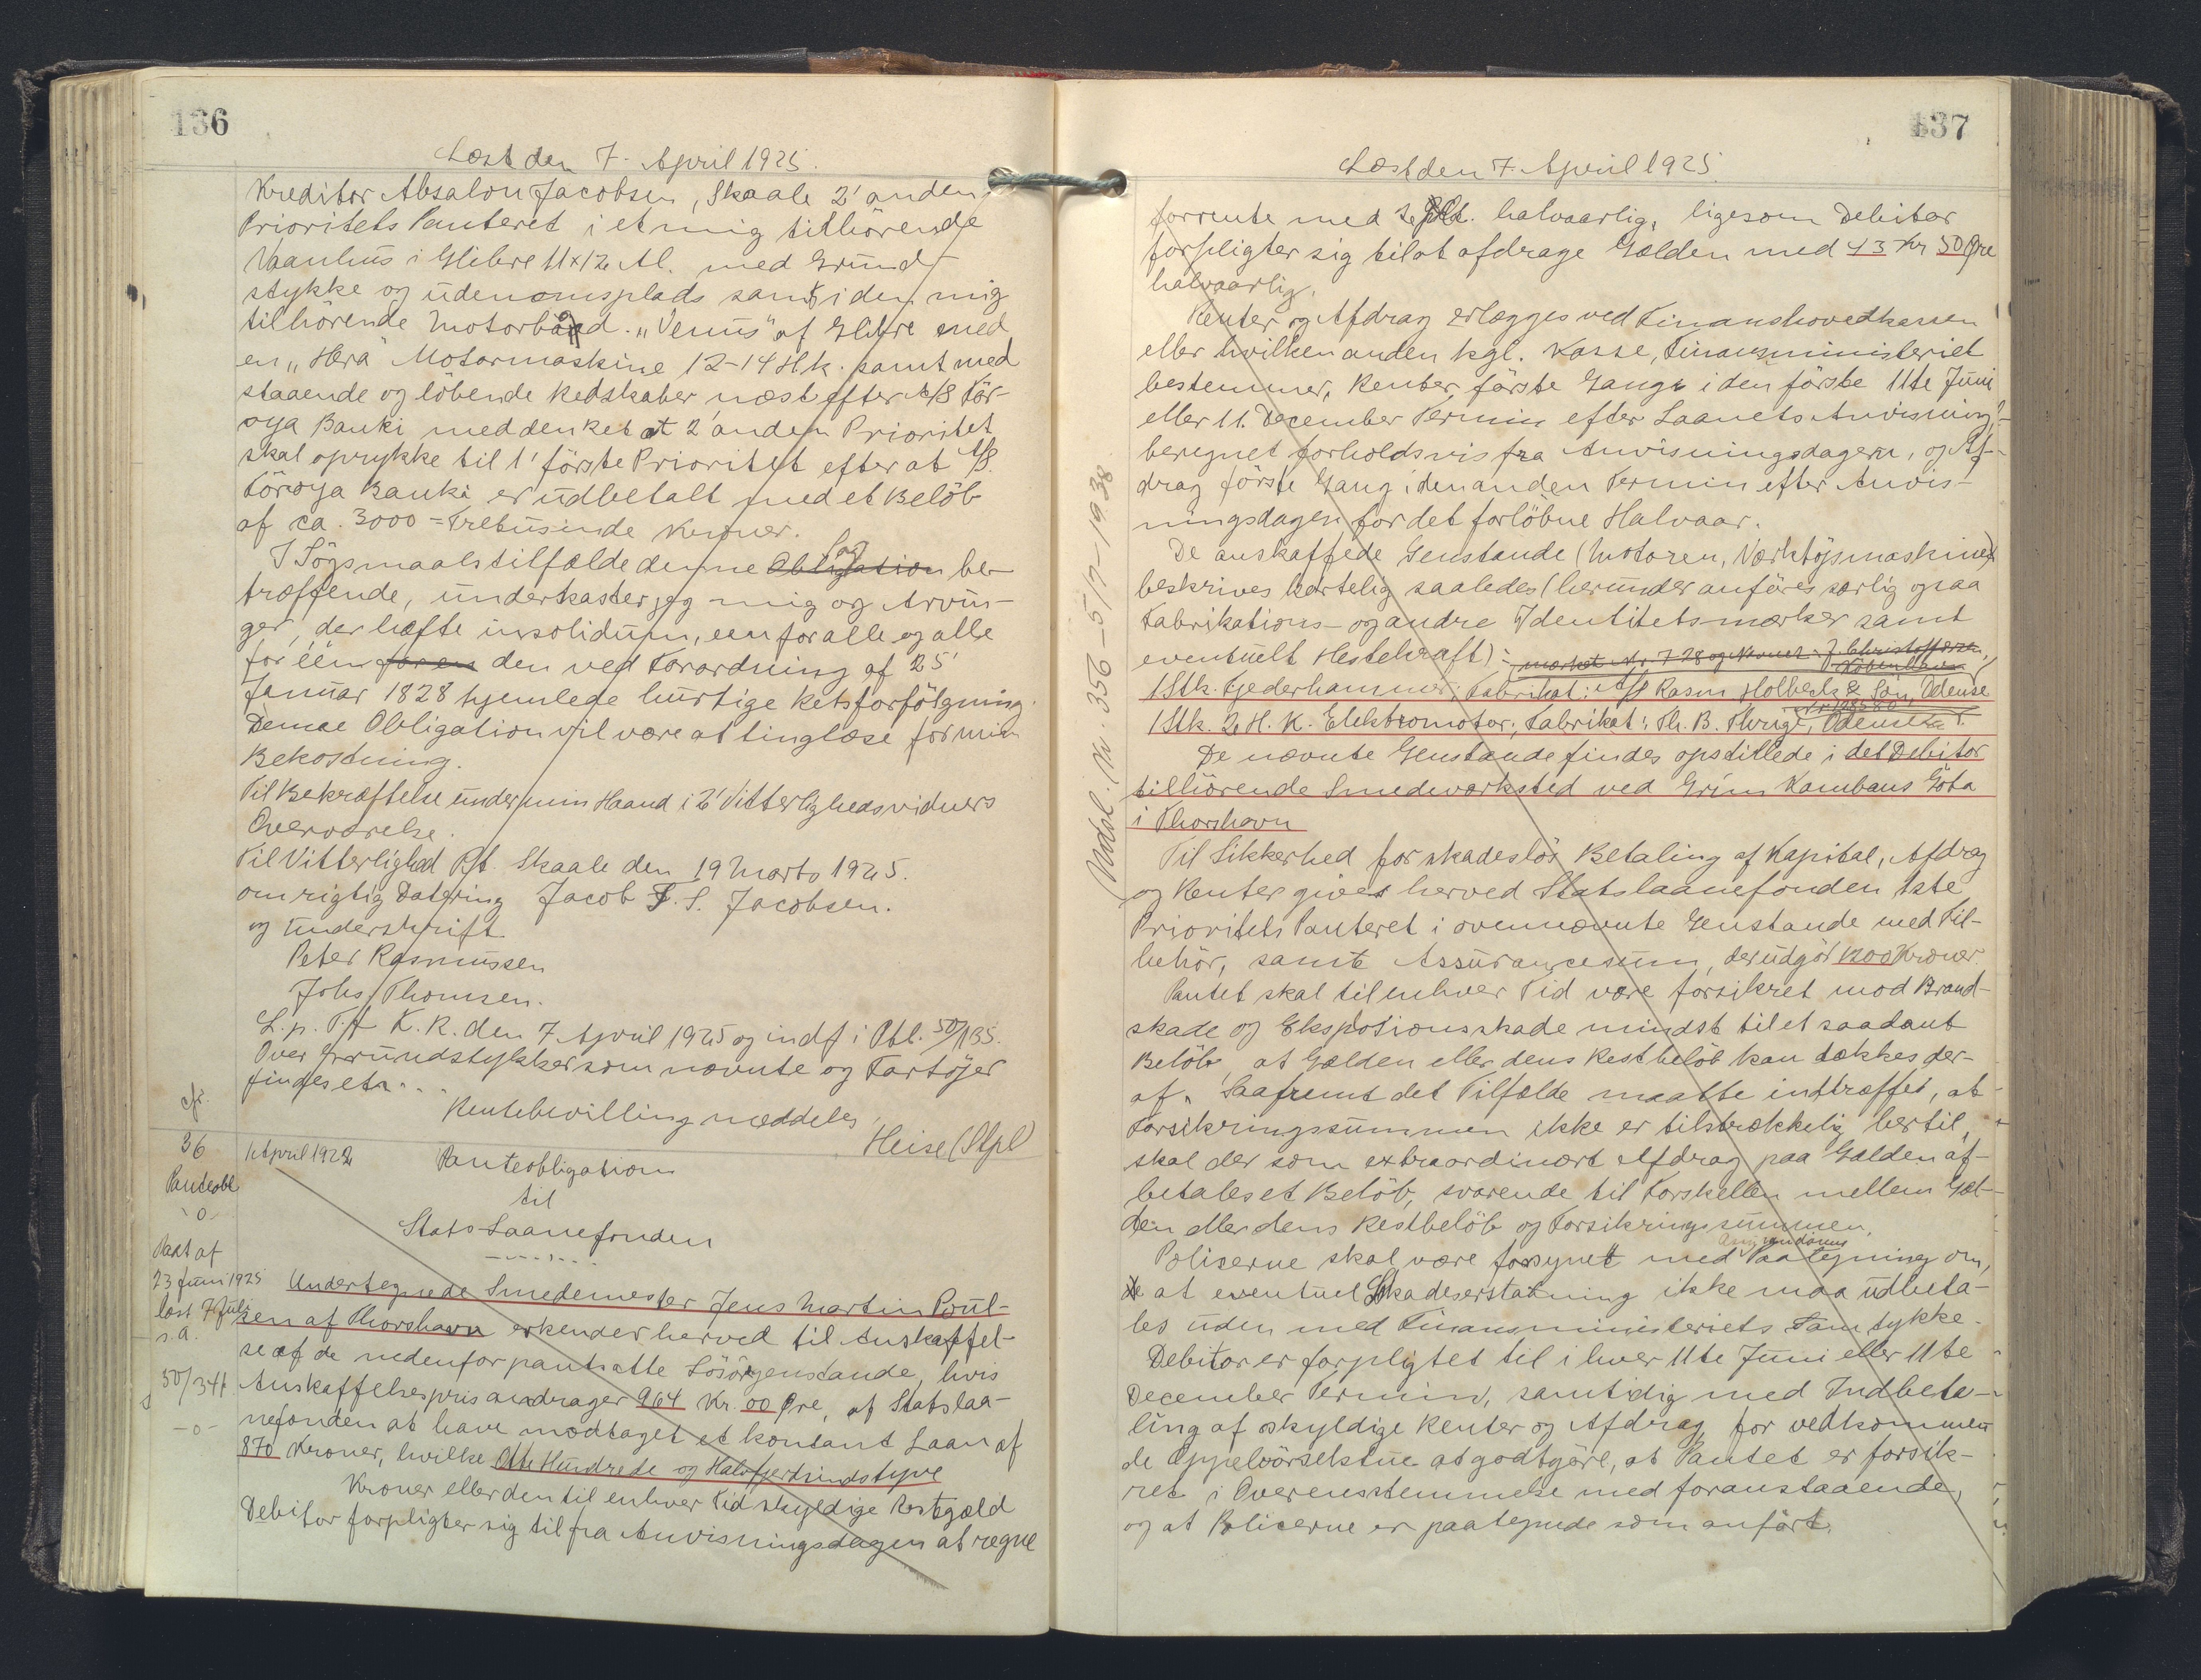 136
Læst den 7. April 1925.
Kreditor Absalon Jacobsen, Skaale 2' anden
Prioritets Panteret i et mig tilhörende
Vaanhus i Glibre 11x12 Al. med Grund-
stykke og udenomsplads samt i den mig
tilhörende Motorbaad. "Venus" af Glibre med
en "Hera" Motormaskine 12-14 Hk. samt med
staaende og löbende Redskaber næst efter A/S För-
oya Banki med den Ret at 2' anden Prioritet
skal oprykke til 1' förste Prioritet efter at A/S.
Föroya Banki er udbetalt med et Belöb
af ca. 3000 = Tretusinde Kroner.
I Sögsmaalstilfælde denne Obligation Sag be-
træffende, underkaster jeg mig og Arvin-
ger, der hæfte insolidum, een for alle og alle
for één for en den ved Forordning af 25'
Januar 1828 hjemlede hurtige Retsforfölgning.
Denne Obligation vil være at tinglæse for min
Bekostning.
Til Bekræftelse under min Haand i 2' Vitterlighedsvidners
Overværelse.
Til Vitterlighed Pt. Skaale den 19 Marts 1925.
om rigtig Datering Jacob S. S. Jacobsen.
og Underskrift
Peter Rasmussen
Johs Thomsen.
L. p. T. f. K. R. den 7 April 1925 og indf i Ptb. 50/135.
Over Grundstykker som nævnte og Fartöjer
findes etc...
Rentebevilling meddeles
Heise (Stpl)
cfr.
36
Panteobl
-o-
Paat af
23 Juni 1925
læst 7 Juli
s. A.
50/341
-o-
1 April 1922
Panteobligation
til
Stats-Laanefonden
Undertegnede Smedemester Jens Martin Poul-
sen af Thorshavn erkender herved til Anskaffel-
se af de nedenfor pantsatte Lösöregenstande, hvis
Anskaffelsespris andrager 964 Kr. 00 Øre, af Statslaa-
nefonden at have modtaget et kontant Laan af
870 Kroner, hvilke Otte Hundrede og Halvfjerdsindstyve
Kroner eller den til enhver Tid skyldige Restgæld
Debitor forpligter sig til fra Anvisningsdagen at regne
137
Læst den 7. April 1925.
forrente med 2 pCt. halvaarlig, ligesom Debitor
forpligter sig til at afdrage Gælden med 43 Kr 50 Øre
halvaarlig.
Renter og Afdrag erlægges ved Finanshovedkassen
eller hvilken anden kgl. Kasse, Finansministeriet
bestemmer, Renter, förste Gang i den förste 11te Juni
eller 11. December Termin efter Laanets Anvisning,
beregnet forholdsvis fra Anvisningsdagen, og Af-
drag förste Gang i den anden Termin efter Anvis-
ningsdagen for det forlöbne Halvaar.
De anskaffede Genstande (Motoren, Værktöjsmaskine)
beskrives kortelig saaledes (herunder anföres særlig ogsaa
Fabrikations- og andre Identitetsmærker samt
eventuelt Hestekraft):- mærket Nr. 728 og Navnet J. Christoffersen,
Köbenhavn
1 Stk. Fjederhammer; Fabrikat: A/S Rasm Holbeck & Sön, Odense
1 Stk. 2 H. K. Elektromotor; Fabrikat: Th. B. Thrige, Odense
De nævnte Genstande findes opstillede i det Debitor
tilhörende Smedeværksted ved Grím Kambans Göta
i Thorshavn
Til Sikkerhed for skadeslös Betaling af Kapital, Afdrag
og Renter gives herved Statslaanefonden 1ste
Prioritets Panteret i ovennævnte Genstande med Til-
behör, samt Assurancesum, der udgör 1200 Kroner.
Pantet skal til enhver Tid være forsikret mod Brand-
skade og Eksplotionsskade mindst til et saadant
Belöb, at Gælden eller dens Restbelöb kan dækkes der-
af. Saafremt det Tilfælde maatte indtræffet, at
Forsikringssummen ikke er tilstrækkelig hertil,
skal der som extraordinært Afdrag paa Gælden af-
betales et Belöb, svarende til Forskellen mellem Gæl-
den eller dens Restbelöb og Forsikringssummen.
Poliserne skal være forsynet med Paategning om,
at eventuel Skadeserstatning ikke maa udbeta-
les uden med Finansministeriets Samtykke.
Debitor er forpligtet til i hver 11te Juni eller 11te
December Termin, samtidig med Indbeta-
ling af skyldige Renter og Afdrag, for vedkommen
de Oppebörselstue at godtgöre, at Pantet er forsik-
ret i Overensstemmelse med foranstaaende,
og at Policerne er paategnede som anfört.
Udsl. Nr. 356 - 5/7-1938